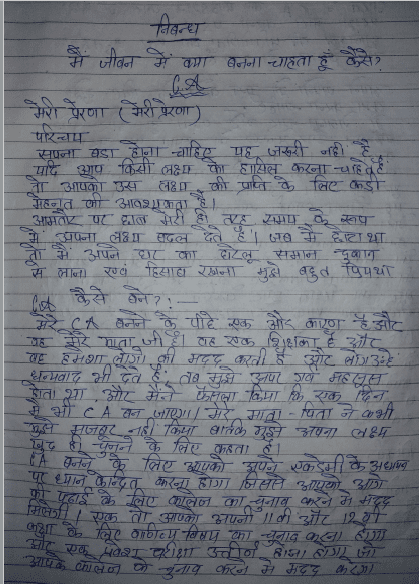 निबन्ध
मैं जीवन में क्या बनना चाहता हूँ कैसे?
C.A
मेरी प्रेरणा (मेरी प्रेरणा)
परिचय
सपना बडा होना चाहिए यह जरूरी नही है
यदि आप किसी लक्ष्य को हासिल करना चाहते है
तो आपको उस लक्ष्य की प्राप्ति के लिए कडी
मेहनत की आवश्यकता है।
आमतौर पर छात्र मेरी ही तरह समय के साथ
में अपना लक्ष्य बदल देते है। जब मै छोटा था
तो मैं अपने घर का घरेलू समान दुकान
से लाना एवं हिसाब रखना मुझे बहुत प्रिय था
CA कैसे बने?:—
मेरे CA बनने के पीछे एक और कारण है और
वह मेरे माता जी है। वह एक शिक्षिका है और
वह हमेशा लोगो की मदद करती है और लोग उन्हे
धन्यवाद भी देते है। तब मुझे गर्व महसूस
होता था और मैने फैसला किया कि एक दिन
मै भी CA बन जाएगा। मेरे माता-पिता ने कभी
मुझे मजबूर नही किया बल्कि मुझे अपना लक्ष्य
खुद ही चुनने के लिए कहता है।
CA बनने के लिए आपको अपने एकडेमी के अध्ययन
पर ध्यान केन्द्रित करना होगा जिससे आपको आगे
की पढाई के लिए कॉलेज का चुनाव करने मे मदद
मिलेगी। एक तो आपको अपनी 11 वी और 12 वी
कक्षा के लिए वाणिज्य विषय का चुनाव करना होगा
और एक प्रवेश परीक्षा उत्तीर्ण होना होगा जो
आपके कॉलेज के चुनाव करने मे मदद करेगा